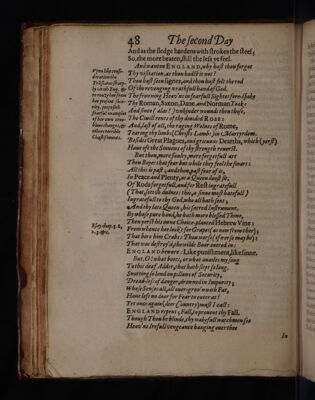 48 The second Day
And as the sledge hardens with strokes the steel;
So, the more beaten, still the less ye feel.
And wanton ENGLAND, why hast thou forgot
Thy visitation, as thou hadst it not?
Thou hast seen signes, and thou hast felt the rod
Of the revenging wrathfull hand of God.
The frowning Heav'ns in fearfull Sights fore-spoke
Thy Roman, Saxon, Dane, and Norman Yoak:
And since (alas!) unkinder wounds then those,
The Civill rents of thy divided Rose:
And, last of all, the raging Wolves of Rome,
Tearing thy limbs (Christs Lambs) in Martyrdom.
Besides Great Plagues, and grievous Dearths, which (yerst)
Haue oft the Sinnews of thy strength reuerst.
But thou, more faulty, more forgetfull art
Then Boyes that fear but while they feele the smart:
All this is past; and thou, past fear of it,
In Peace and Plenty, as a Queen doost sit,
Of Rods forgetfull, and for Rest ingratefull
(That, sottish dulnes: this, a sinne most hatefull)
Ingratefull to thy God, who all hath sent;
And thy late Queen, his sacred Instrument,
By whose pure hand, he hath more blessed Thine,
Then yerst his owne Choice-planted Hebrew Vine:
From whence he look't for Grapes (as now from thee);
That bore him Crabs: Thou worse (if worse may be):
That was destroy'd, the wilde Boar entred in:
ENGLAND beware: Like punishment, like sinne.
But, O! what boots, or what auailes my song
To this deaf Adder, that hath slept so long,
Snorting so loud on pillows of Security,
Dread-less of danger, drowned in Impurity;
Whose Senses all, all over-grow'n with Fat,
Haue left no door for Fear to enter at?
Yet once again (deer Country) must I call:
ENGLAND repent; Fall, to preuent thy Fall.
Though Thou be blinde, thy wakefull watchmen see
Heav'ns Irefull vengeance hanging over thee
In
Esay chap. 5. 1,
2, 3. &c.